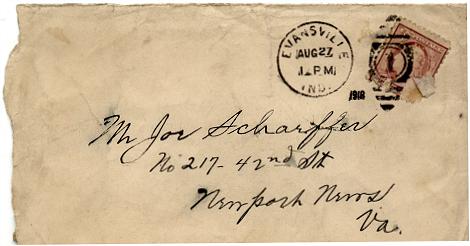 EVANSVILLE
AUG 27
1 PM
IND.
1918
Mr Joe Schariffer
No 217 - 42nd St
Newport News
Va.